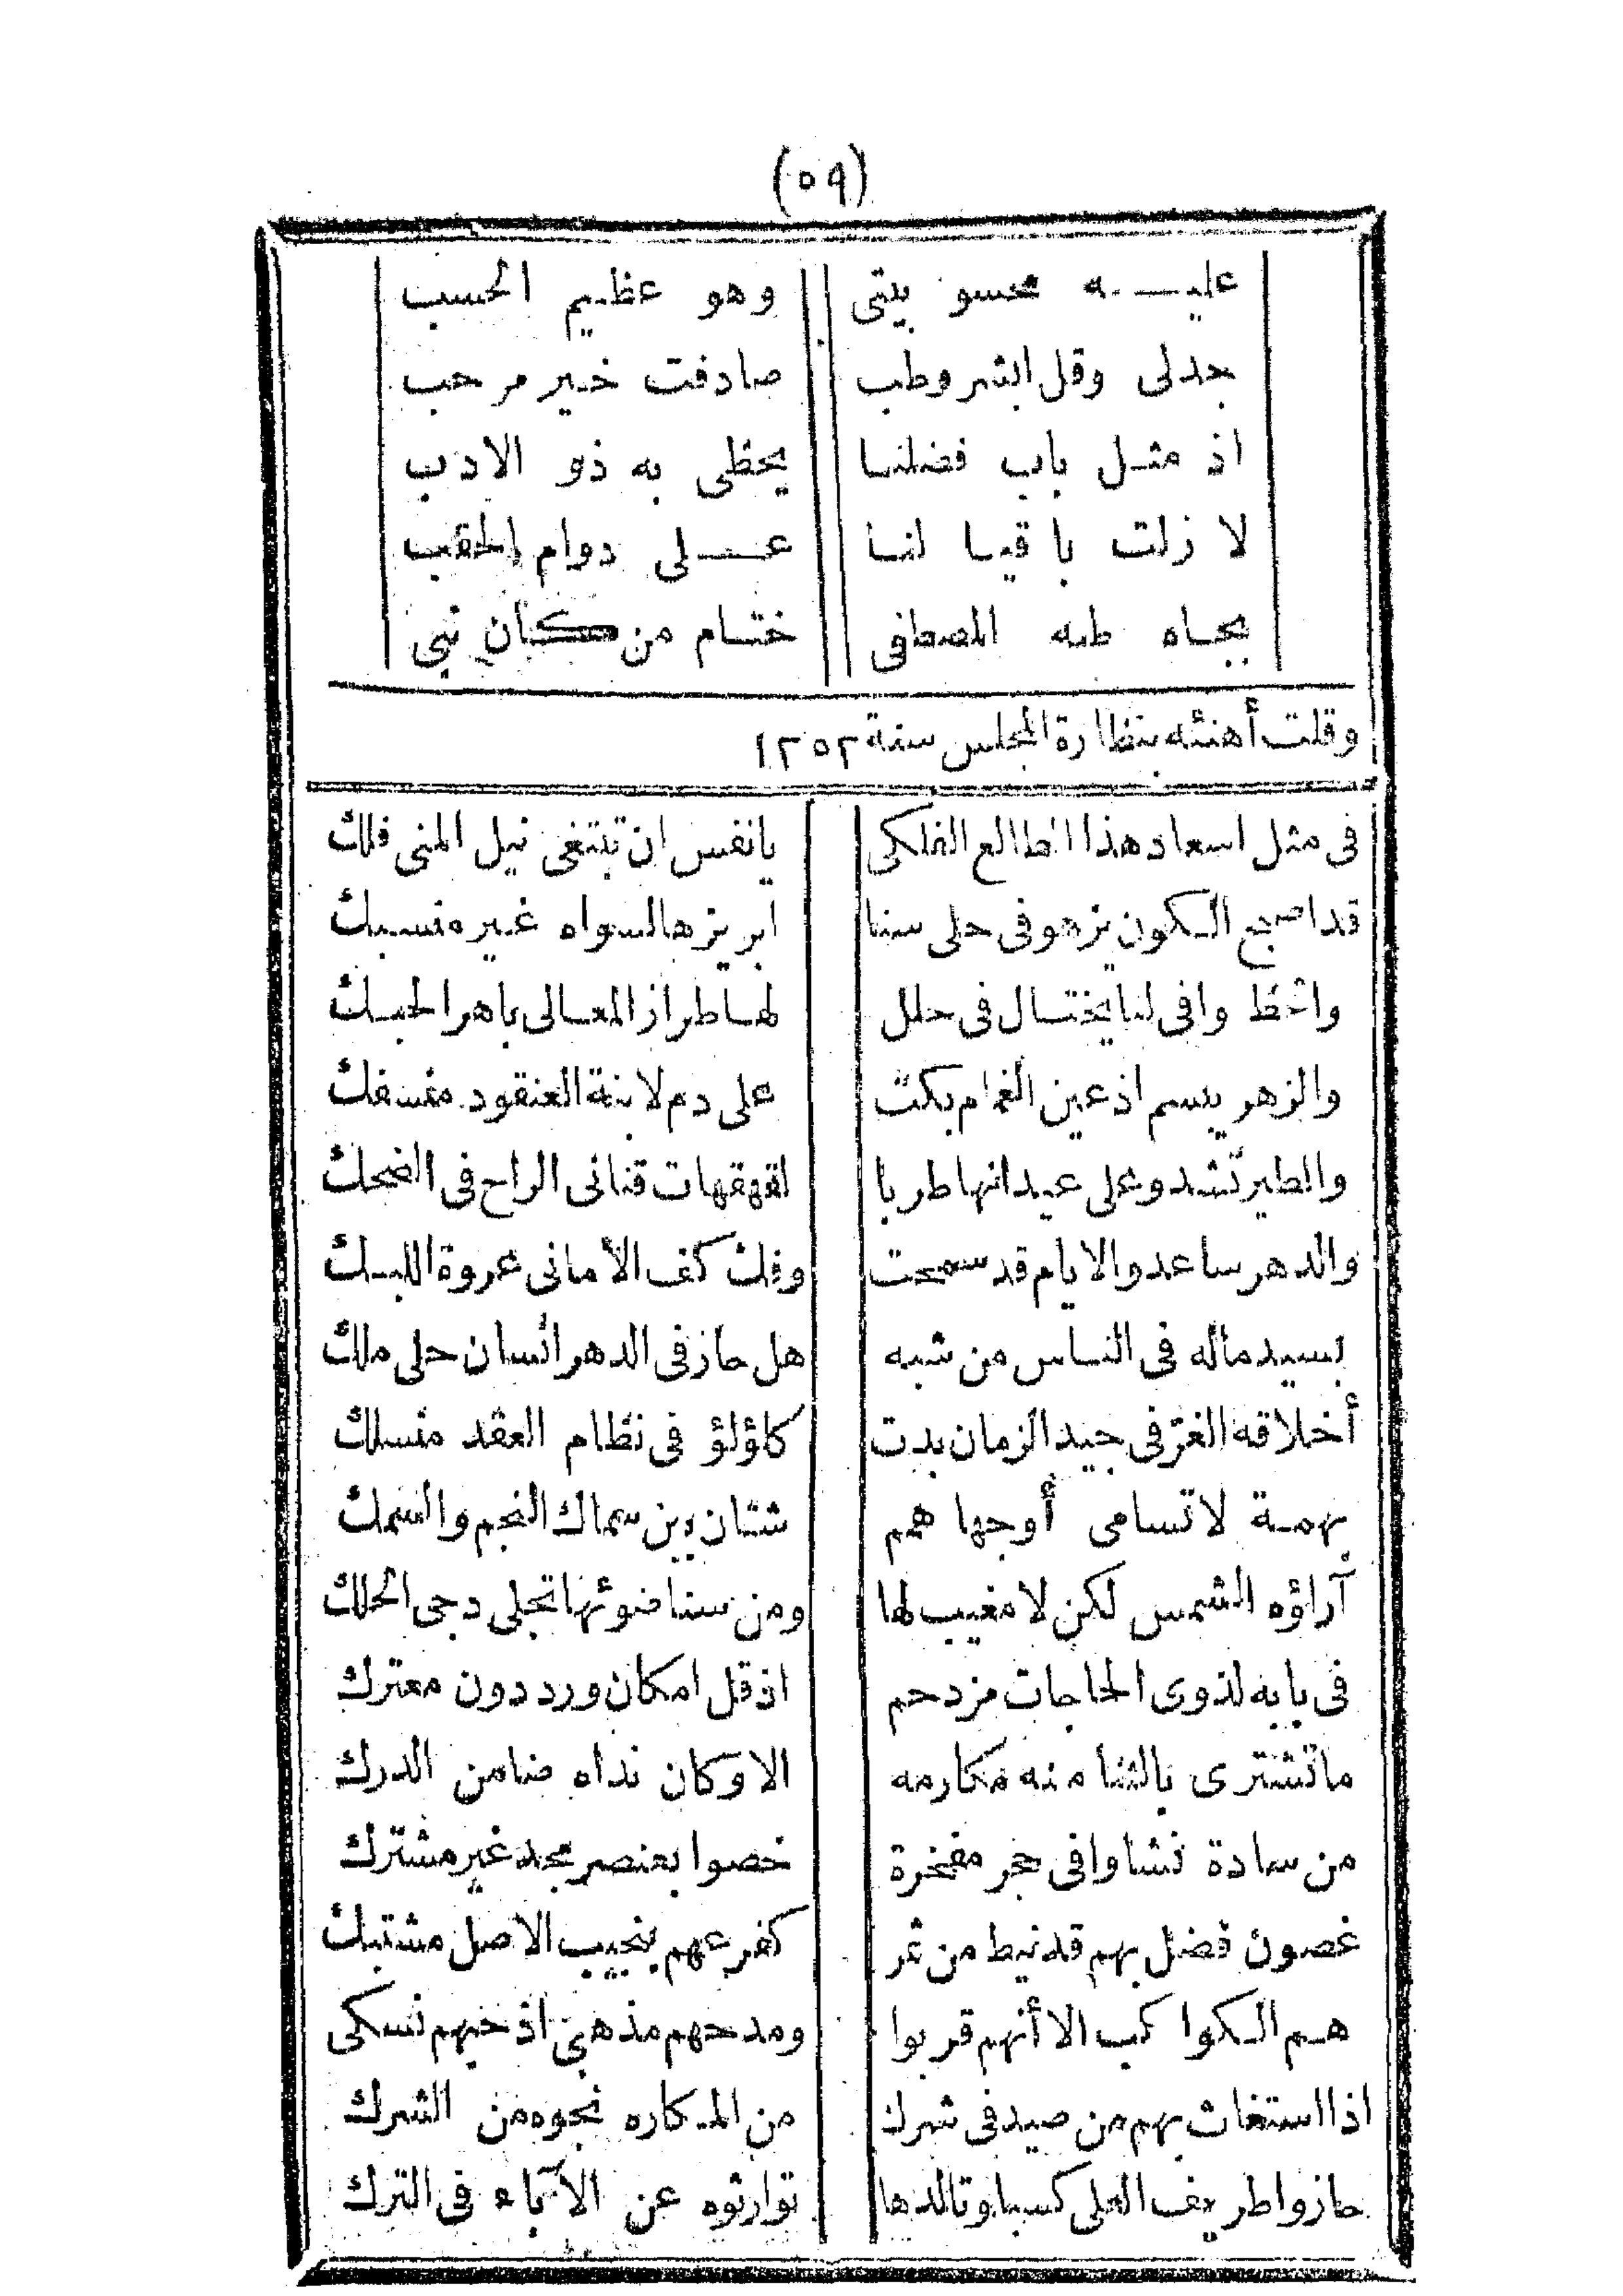 (٥٩)
عليه محسوبيتى وهو عظيم الحسب
جدلى وقل ابشر وطب صادفت خير مرحب
اذ مثل باب فضلنا يحظى به ذو الادب
لا زلت باقيا لنا على دوام الحقب
بجاه طه المصطفى ختام من كان نبى
وقلت أهنئه بنظارة المجلس سنة ١٢٥٢
فى مثل اسعاد هذا الطالع الفلكى يانفس ان تبتغى نيل المنى فلك
قد اصبح الكون يزهو فى حلى سنا ابريزها لسواه غير منسبك
والحظ وافى لنا يختال فى حلل لها طراز المعالى باهر الحبك
والزهر يبسم اذ عين الغمام بكت على دم لابنة العنقود منسفك
والطير تشدو على عيدانها طربا لقهقهات قنانى الراح فى الضحك
والدهر ساعد والايام قد سمحت وفك كف الأمانى عروة اللبك
بسيد ماله فى الناس من شبه هل حاز فى الدهر انسان حلى ملك
أخلاقه الغرّ فى جيد الزمان بدت كلؤلؤ فى نظام العقد منسلك
بهمة لا تسامى أوجها همم شتان بين سماك النجم والسمك
آراؤه الشمس لكن لا مغيب لها ومن سنا ضوئها تجلى دجى الحلك
فى بابه لذوى الحاجات مزدحم اذ قل امكان ورد دون معترك
ما تشترى بالثنا منه مكارمه الا وكان نداه ضامن الدرك
من سادة نشاوا فى حجر مفخرة خصوا بعنصر مجد غير مشترك
غصون فضل بهم قد نيط من ثمر كفرعهم بنجيب الاصل مشتبك
هم الكواكب الا أنهم قربوا ومدحهم مذهبى اذ حبهم نسكى
اذا استغاث بهم من صيد فى شرك من المكاره نجوه من الشرك
حازوا طريف العلى كسبا وتالدها توارثوه عن الآباء فى الترك